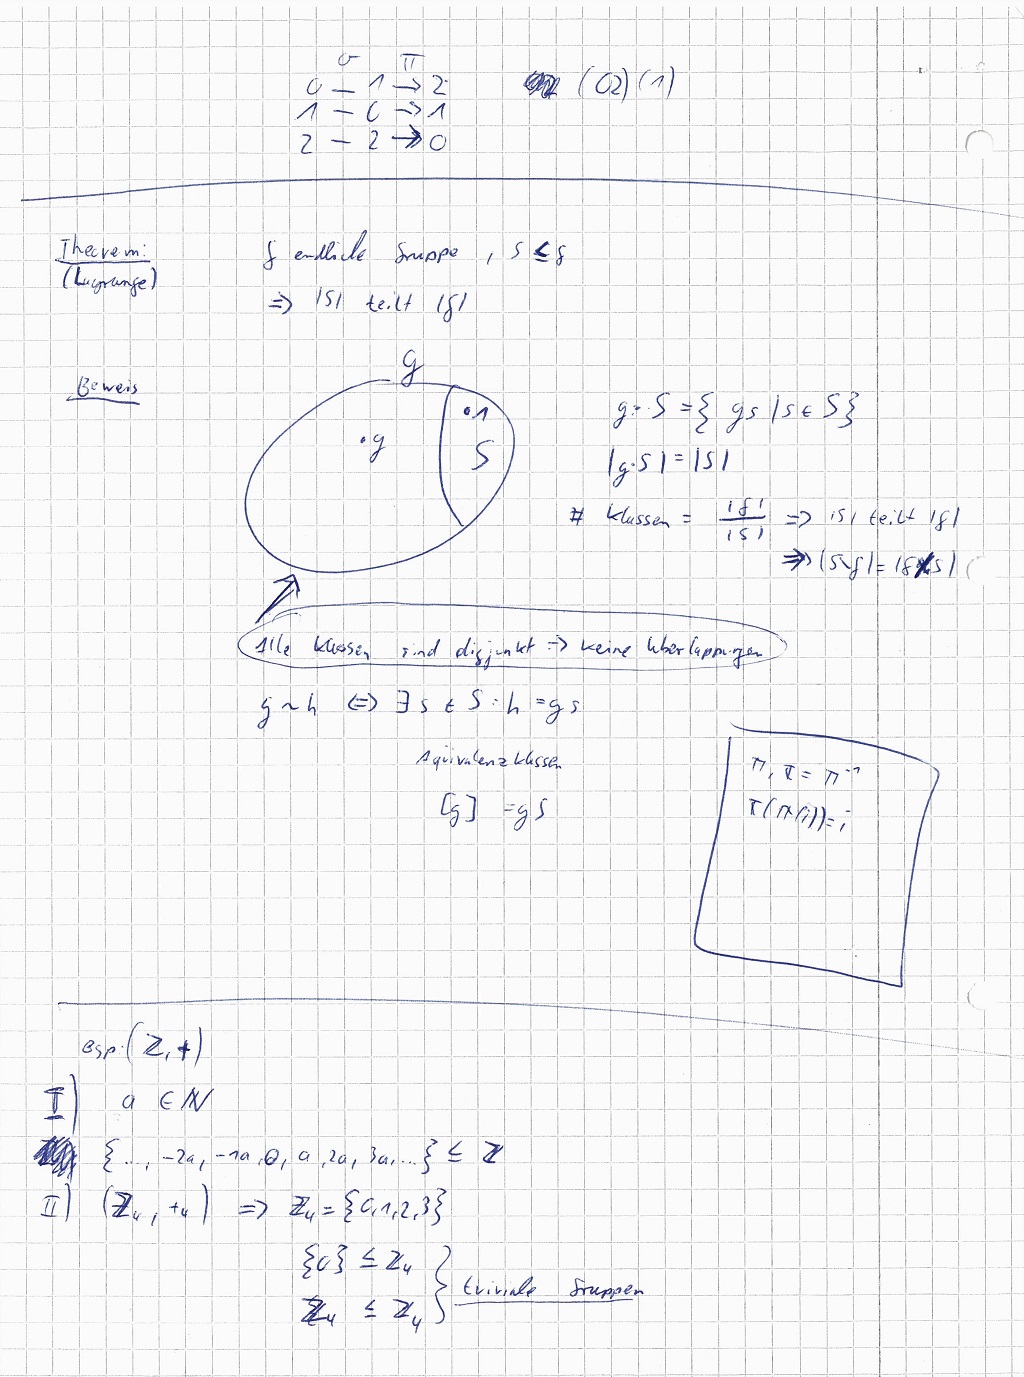 σ π
0 — 1 → 2
1 — 0 → 1
2 — 2 → 0
(02)(1)
Theorem:
(Lagrange)
G endliche Gruppe, S ≤ G
=> |S| teilt |G|
Beweis
G
·1
·g
S
g·S = { gs | s ∈ S}
|g·S| = |S|
# Klassen = |G| / |S| => |S| teilt |G|
Alle Klassen sind disjunkt => keine Überlappungen
g ~ h <=> ∃ s ∈ S : h = gs
Äquivalenzklassen
[g] = gS
π, τ = π⁻¹
τ(π(i)) = i
Bsp. (ℤ, +)
I) a ∈ ℕ
{..., -2a, -1a, 0, a, 2a, 3a, ...} ≤ ℤ
II) (ℤ₄, +₄) => ℤ₄ = {0,1,2,3}
{0} ≤ ℤ₄
ℤ₄ ≤ ℤ₄
triviale Gruppen